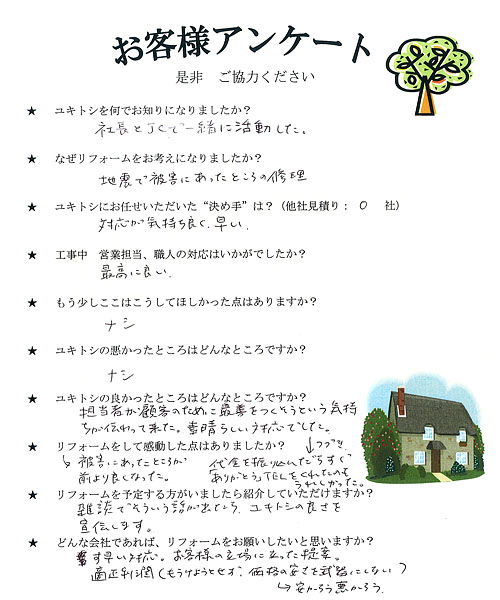 お客様アンケート
是非 ご協力ください
★ ユキトシを何でお知りになりましたか？
社長とJCで一緒に活動した。
★ なぜリフォームをお考えになりましたか？
地震で被害にあったところの修理
★ ユキトシにお任せいただいた“決め手”は？（他社見積り： 0 社）
対応が気持ち良く、早い。
★ 工事中 営業担当、職人の対応はいかがでしたか？
最高に良い。
★ もう少しここはこうしてほしかった点はありますか？
ナシ
★ ユキトシの悪かったところはどんなところですか？
ナシ
★ ユキトシの良かったところはどんなところですか？
担当者が顧客のために最善をつくそうという気持
ちが伝わって来た。素晴らしい対応でした。
★ リフォームをして感動した点はありましたか？ ↓つづき
↳被害にあったところが 代金を振り込んだらすぐ
前より良くなった。 ありがとうTELをくれたのも
うれしかった。
★ リフォームを予定する方がいましたら紹介していただけますか？
雑談でそういう話が出たら、ユキトシの良さを
宣伝します。
★ どんな会社であれば、リフォームをお願いしたいと思いますか？
す早い対応。お客様の立場に立った提案。
適正利潤（もうけようとせず、価格の安さを武器にしない）
↳安かろう悪かろう